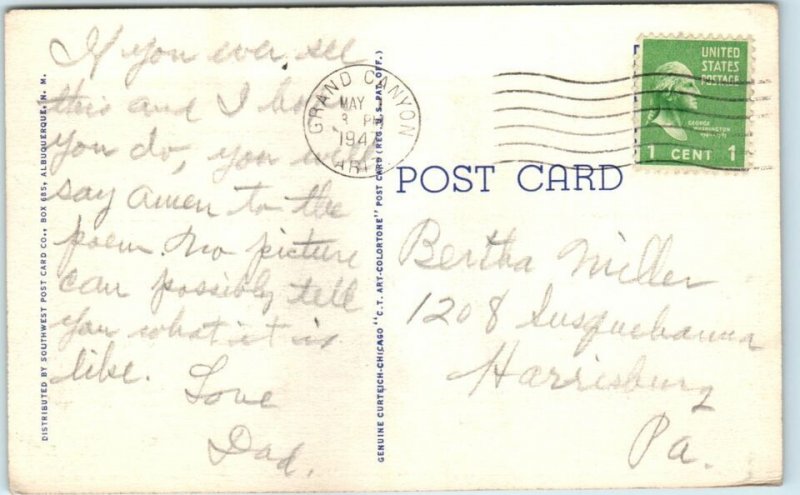 If you ever see
this and I hope
you do, you will
say amen to the
poem. No picture
can possibly tell
you what it is
like. Love
Dad.
DISTRIBUTED BY SOUTHWEST POST CARD CO., BOX 685, ALBUQUERQUE, N. M.
GENUINE CURTEICH-CHICAGO "C.T. ART-COLORTONE" POST CARD (REG. U.S. PAT. OFF.)
GRAND CANYON
MAY
3 PM
194
ARIZ
UNITED
STATES
POSTAGE
GEORGE
WASHINGTON
1 CENT 1
POST CARD
Bertha Miller
1208 Susquehanna
Harrisburg
Pa.